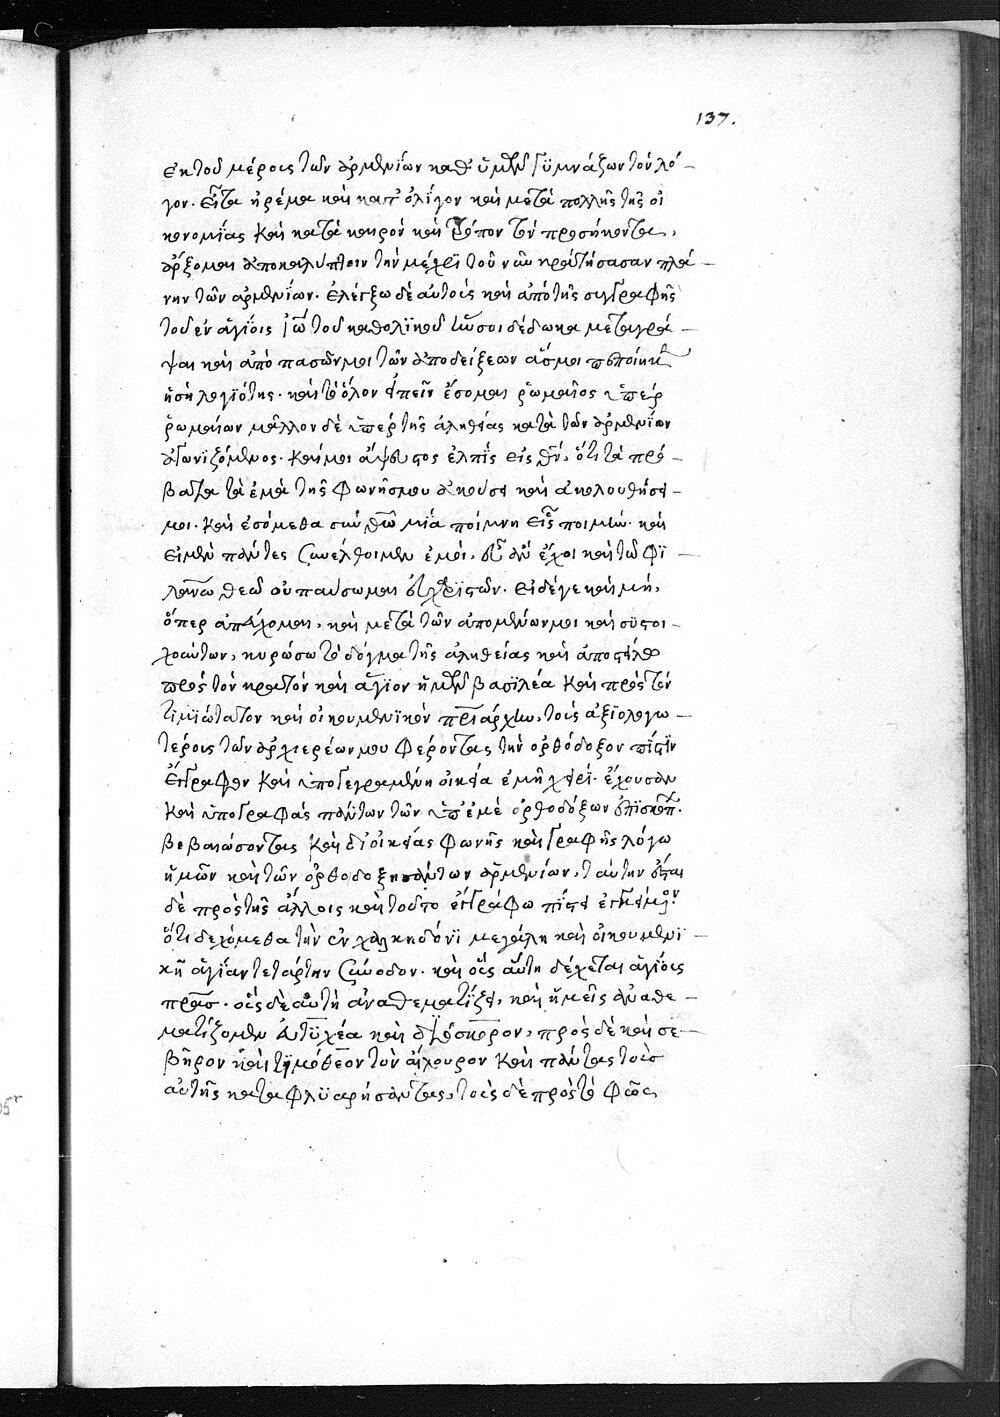 137.
ἐκ τοῦ μέρους τῶν ἀρμενίων καθ' ὑμῶν γυμνάζων τὸν λό-
γον. εἶτα ἠρέμα καὶ κατ' ὀλίγον καὶ μετὰ πολλῆς τῆς οἰ
κονομίας καὶ κατὰ καιρὸν καὶ τόπον τὸν προσήκοντα,
ἄρξομαι ἀποκαλύπτειν τὴν μέχρι τοῦ νῦν κρατήσασαν πλά-
νην τῶν ἀρμενίων. ἐλέγξω δὲ αὐτοὺς καὶ ἀπὸ τῆς συγγραφῆς
τοῦ ἐν ἁγίοις ἰω τοῦ καθολικοῦ σοι δέδωκα μεταγρά-
ψαι καὶ ἀπὸ πασῶν μοι τῶν ἀποδείξεων ἅς μοι
ἡ σὴ λογιότης. καὶ τὸ ὅλον εἰπεῖν ἔσομαι ῥωμαῖος ὑπὲρ
ῥωμαίων μᾶλλον δὲ ὑπὲρ τῆς ἀληθείας κατὰ τῶν ἀρμενίων
ἀγωνιζόμενος. καί μοι ἄψευστος ἐλπὶς εἰς θν, ὅτι τὰ πρό-
βατα τὰ ἐμὰ τῆς φωνῆς μου ἀκούσει καὶ ἀκολουθήσει-
μοι. καὶ ἐσόμεθα σὺν θω μία ποίμνη εἷς ποιμήν. καὶ
εἰ μὲν πάντες συνέλθοιμεν ἐμοὶ, εὖ ἂν ἔχοι καὶ τῷ φι-
λανω θεῷ οὐ παύσωμαι εὐχαριστῶν. εἰ δέ γε καὶ μὴ,
ὅπερ ἀπεύχομαι, καὶ μετὰ τῶν ἀπομενόντων μοι καὶ συστοι-
χούντων, κυρώσω τὸ δόγμα τῆς ἀληθείας καὶ ἀποστελῶ
πρὸς τὸν κραταιὸν καὶ ἅγιον ἡμῶν βασιλέα καὶ πρὸς τὸν
τιμιώτατον καὶ οἰκουμενικὸν πριάρχην, τοὺς ἀξιολογω-
τέρους τῶν ἀρχιερέων μου φέροντας τὴν ὀρθόδοξον πίστιν
ἔγγραφον καὶ ὑπογεγραμμένη οἰκεία ἐμῇ χειρί. ἔχουσαν
καὶ ὑπογραφὰς πάντων τῶν ὑπ' ἐμὲ ὀρθοδόξων ἐπισκόπ.
βεβαιώσοντας καὶ δι' οἰκείας φωνῆς καὶ γραφῆς λόγω
ἡμῶν καὶ τῶν ὀρθοδοξησάντων ἀρμενίων, ταύτην εἶναι
δὲ πρὸς τῆς ἄλλοις καὶ τοῦτο ἐγγράφω πίστει
ὅτι δεχόμεθα τὴν ἐν χαλκηδόνι μεγάλη καὶ οἰκουμενι-
κὴ ἁγίαν τετάρτην σύνοδον. καὶ οὓς αὕτη δέχεται ἁγίους
πρασ. οὓς δὲ αὐτὴ ἀναθεματίζει, καὶ ἡμεῖς ἀναθε-
ματίζομεν εὐτυχέα καὶ διόσκορον, πρὸς δὲ καὶ σε-
βῆρον καὶ τιμόθεον τὸν αἴλουρον καὶ πάντας τοὺς
αὐτῆς καταφλυαρήσαντας, τοὺς δὲ πρὸς τὸ φῶς